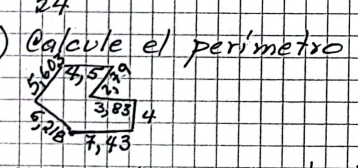 24
) Calcule el perímetro
5,603
4,5
3,83
4
5,218
7,43